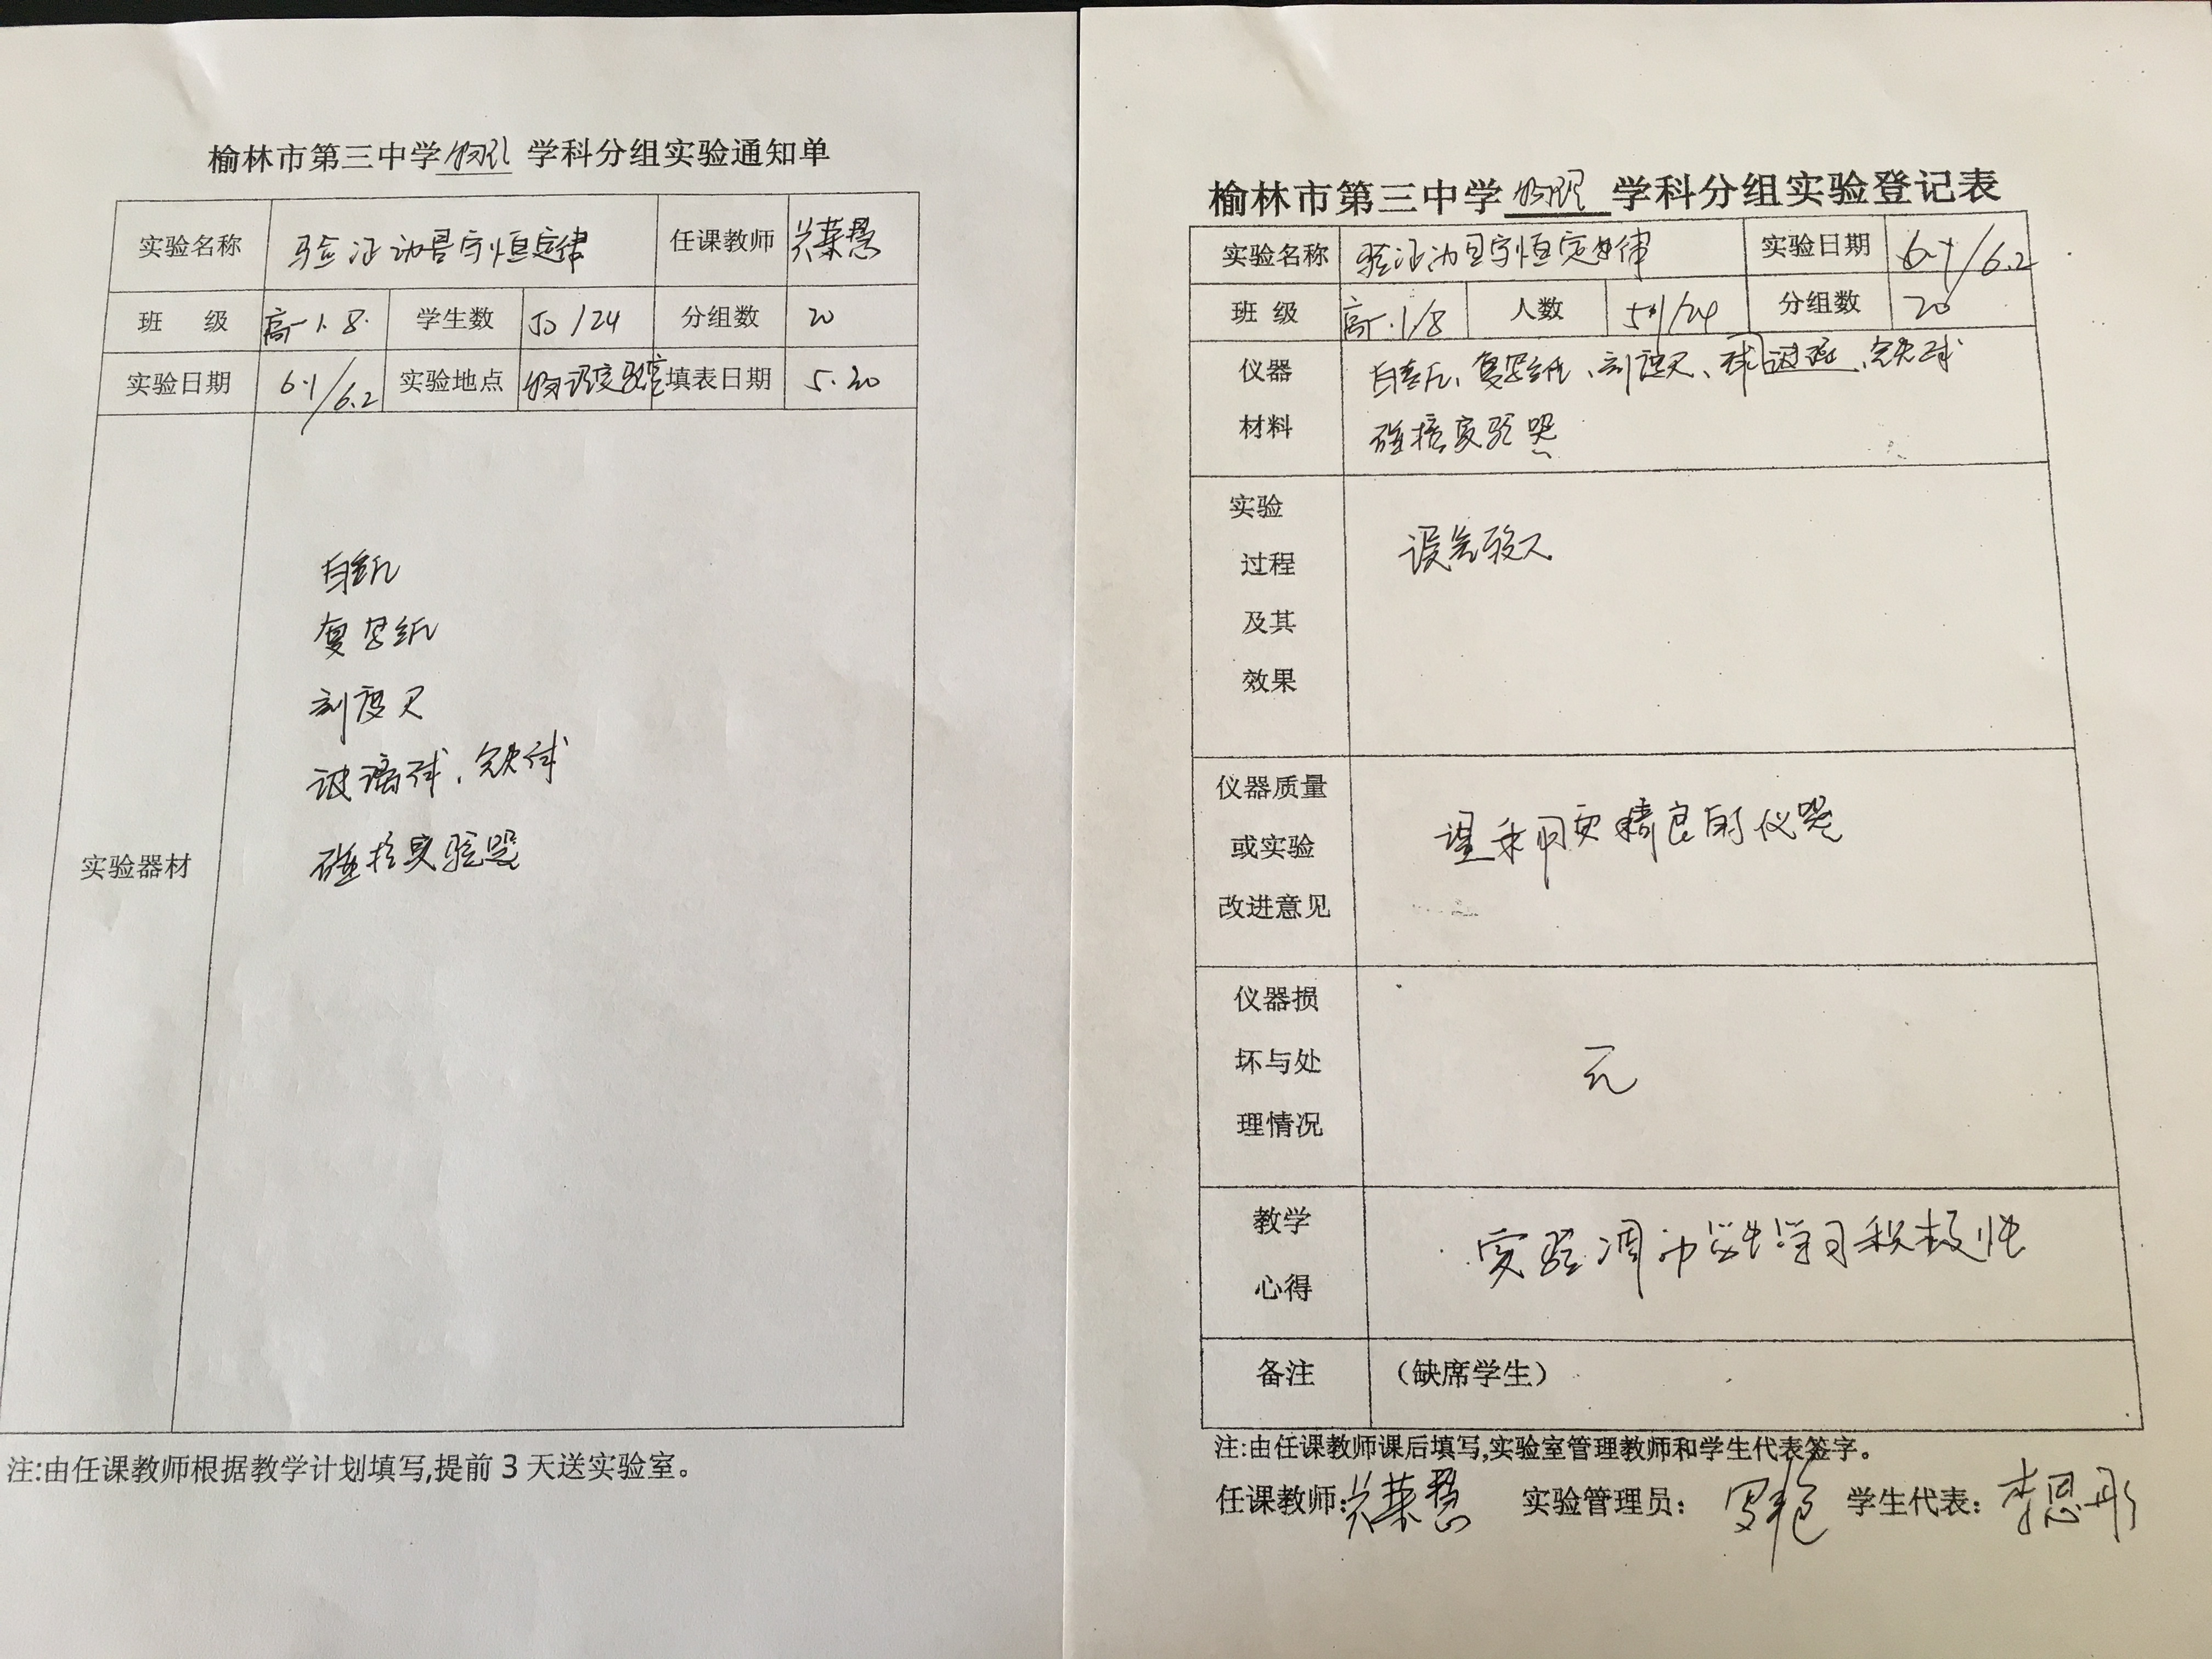 榆林市第三中学物理 学科分组实验通知单
实验名称 验证动量守恒定律 任课教师 慧
班 级 高一1.8. 学生数 50/24 分组数 20
实验日期 6.1/6.2 实验地点 物理实验室 填表日期 5.20
实验器材
白纸
复写纸
刻度尺
玻璃球、钢球
碰撞实验器
注:由任课教师根据教学计划填写,提前3天送实验室。
榆林市第三中学物理 学科分组实验登记表
实验名称 验证动量守恒定律 实验日期 6.1/6.2
班 级 高一.1/8 人数 /24 分组数 20
仪器 材料
白纸、复写纸、刻度尺、球玻璃、球
碰撞实验器
实验 过程 及其 效果
误差较大
仪器质量 或实验 改进意见
望采用更精良的仪器
仪器损 坏与处 理情况
无
教学 心得
实验调动学生学习积极性
备注 （缺席学生）
注:由任课教师课后填写,实验室管理教师和学生代表签字。
任课教师: 慧 实验管理员: 学生代表: 李思彤